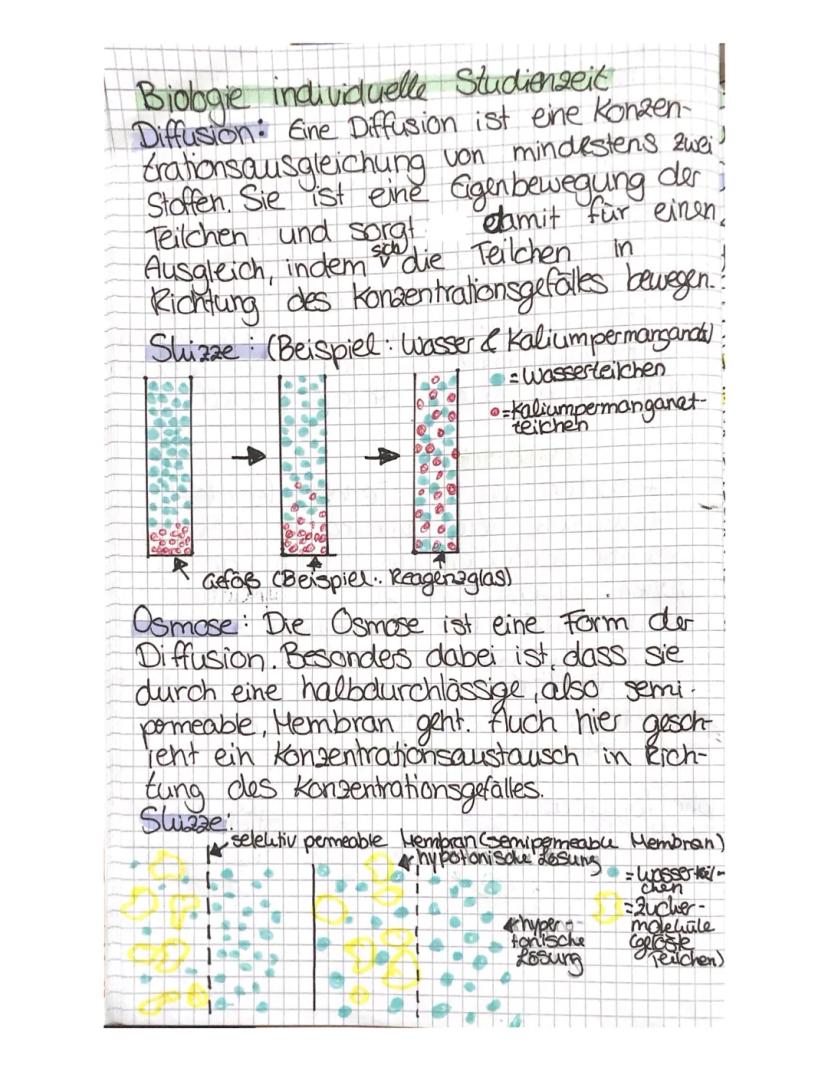 Biologie individuelle Studienzeit
Diffusion: Eine Diffusion ist eine Konzen-
trationsausgleichung von mindestens zwei
Stoffen. Sie ist eine Eigenbewegung der
Teilchen und sorgt damit für einen
Ausgleich, indem sich die Teilchen in
Richtung des Konzentrationsgefälles bewegen.
Skizze: (Beispiel: Wasser & Kaliumpermanganat)
= Wasserteilchen
= Kaliumpermanganat-
teilchen
Gefäß (Beispiel: Reagenzglas)
Osmose: Die Osmose ist eine Form der
Diffusion. Besonders dabei ist, dass sie
durch eine halbdurchlässige, also semi-
permeable, Membran geht. Auch hier gesch-
ieht ein Konzentrationsaustausch in Rich-
tung des Konzentrationsgefälles.
Skizze:
selektiv permeable Membran (semipermeable Membran)
hypotonische Lösung
= Wasserteil-
chen
= Zucker-
moleküle
(gelöste
Teilchen)
hyper-
tonische
Lösung